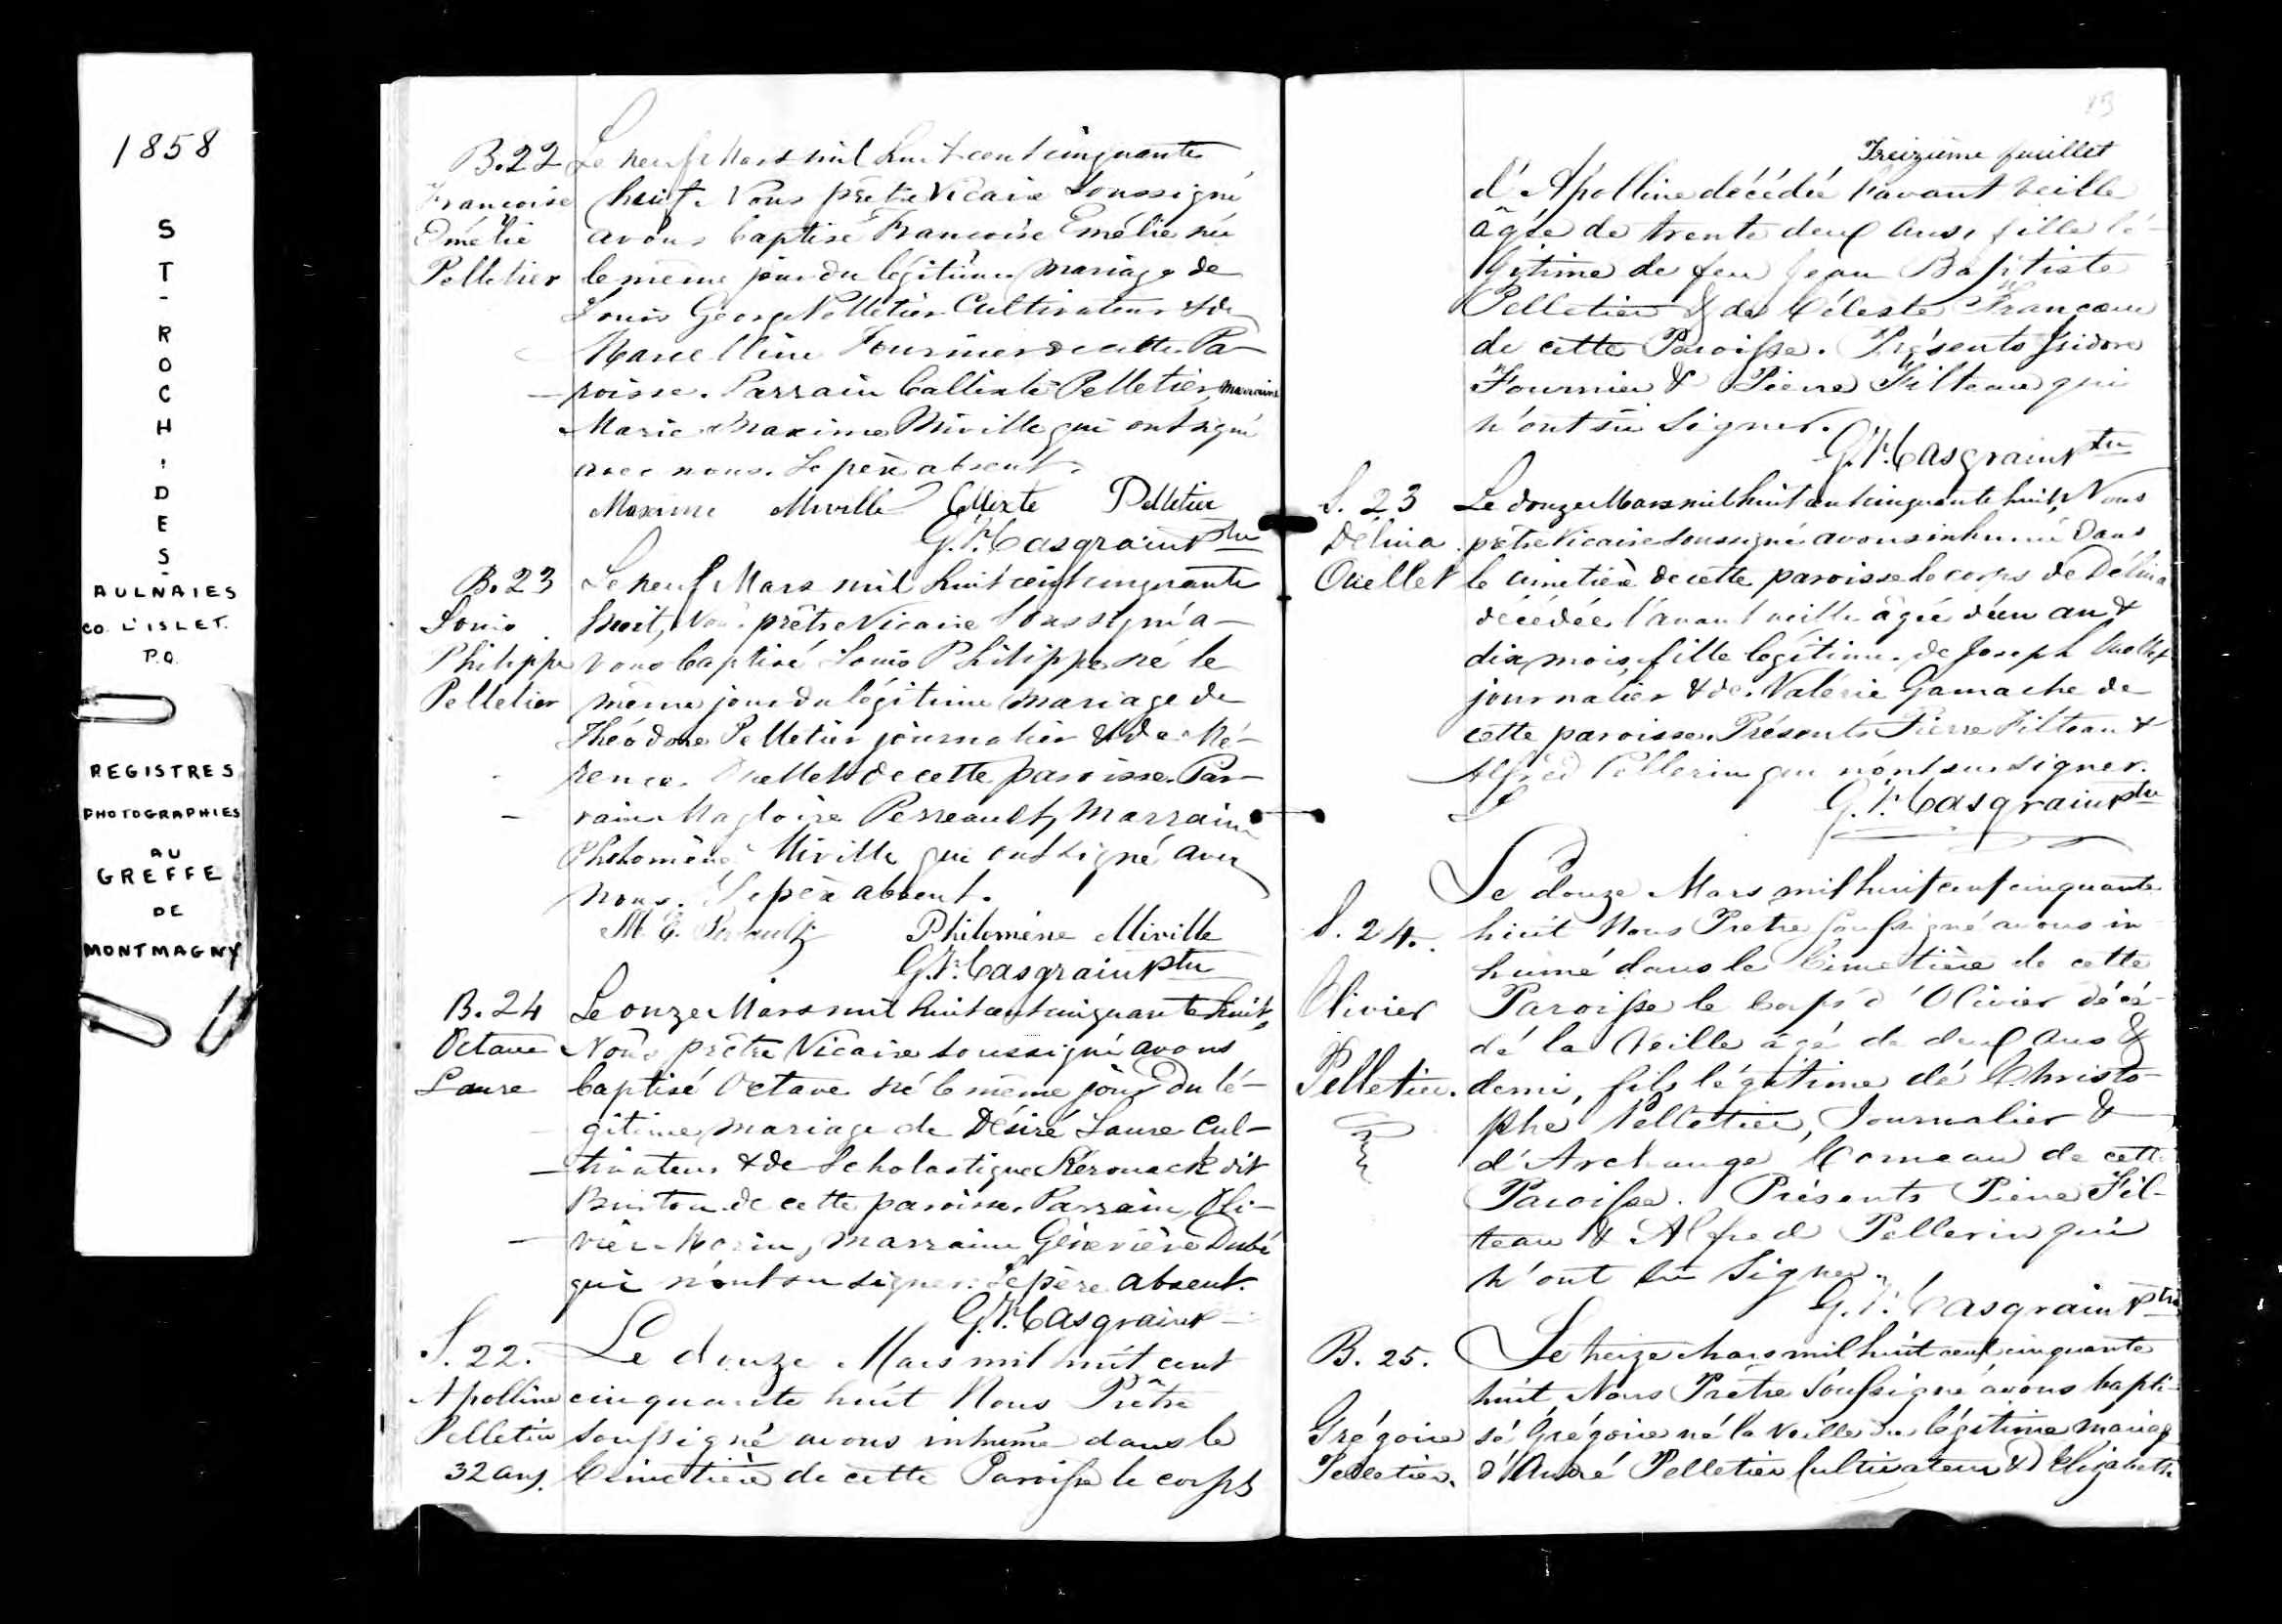 1858
ST-ROCH-DES-
AULNAIES
CO. L'ISLET.
P.Q.
REGISTRES
PHOTOGRAPHIES
AU
GREFFE
DE
MONTMAGNY
B.22
Francoise
Emélie
Pelletier
Le neuf Mars mil huit cent cinquante
huit. Nous prêtre Vicaire soussigné
avons baptisé Francoise Emélie née
le même jour du légitime mariage de
Louis George Pelletier Cultivateur & de
Marcelline Fournier de cette Pa-
roisse. Parrain Callixte Pelletier, marraine
Marie Maxime Miville qui ont signé
avec nous. Le père absent.
Maxime Miville Callixte Pelletier
G. F. Casgrain Ptre
B.23
Louis
Philippe
Pelletier
Le neuf Mars mil huit cent cinquante
huit, Nous prêtre Vicaire Soussigné a-
vons baptisé Louis Philippe né le
même jour du légitime mariage de
Théodore Pelletier journalier & de
Ouellet de cette paroisse. Par-
rain Magloire Perreault, Marraine
Philomène Miville qui ont signé avec
nous. Le père absent.
M. E. Perault Philomène Miville
G. F. Casgrain Ptre
B.24
Octave
Laure
Le onze Mars mil huit cent cinquante huit,
Nous prêtre Vicaire soussigné avons
baptisé Octave né le même jour du lé-
gitime mariage de Désiré Laure Cul-
tivateur & de Scholastique Kérouack dit
Breton de cette paroisse. Parrain Oli-
vier Morin, marraine Géneviève Dubé
qui n'ont su signer. Le père absent.
G. F. Casgrain
S. 22.
Apolline
Pelletier
32 ans.
Le douze Mars mil huit cent
cinquante huit Nous Prêtre
soussigné avons inhumé dans le
Cimetière de cette Paroisse le corps
Treizième feuillet
d'Apolline décédée l'avant veille
âgée de trente deux ans, fille lé-
gitime de feu Jean Baptiste
Pelletier & de Céleste Francoeur
de cette Paroisse. Présents Isidore
Fournier & Pierre Filteau qui
n'ont su signer.
G. F. Casgrain Ptre
S. 23
Délina
Ouellet
Le douze Mars mil huit cent cinquante huit, Nous
prêtre Vicaire soussigné avons inhumé dans
le cimetière de cette paroisse le corps de Délina
décédée l'avant veille âgée d'un an &
dix mois, fille légitime de Joseph Ouellet
journalier & de Valérie Gamache de
cette paroisse. Présents Pierre Filteau &
Alfred Pellerin qui n'ont su signer.
G. F. Casgrain Ptre
S. 24.
Olivier
Pelletier.
Le douze Mars mil huit cent cinquante
huit Nous Pretre soussigné avons in-
humé dans le Cimetière de cette
Paroisse le Corps d'Olivier décé-
dé la Veille agé de deux ans &
demi, fils légitime de Christo-
phe Pelletier, Journalier &
d'Archange Comeau de cette
Paroisse. Présents Pierre Fil-
teau & Alfred Pellerin qui
n'ont su signer.
G. F. Casgrain Ptre
B. 25.
Grégoire
Pelletier.
Le treize Mars mil huit cent cinquante
huit Nous Prêtre Soussigné avons bapti-
sé Grégoire né la veille du légitime mariage
d'André Pelletier Cultivateur & d'Elizabeth